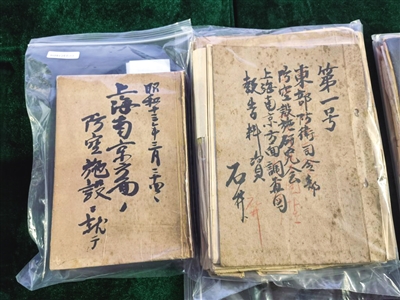 昭和十三年三月
上海南京方面ノ
防空施設ニ就テ
第一号
東部防衛司令部
防空施設研究会
上海南京方面調査団
報告資料
石井